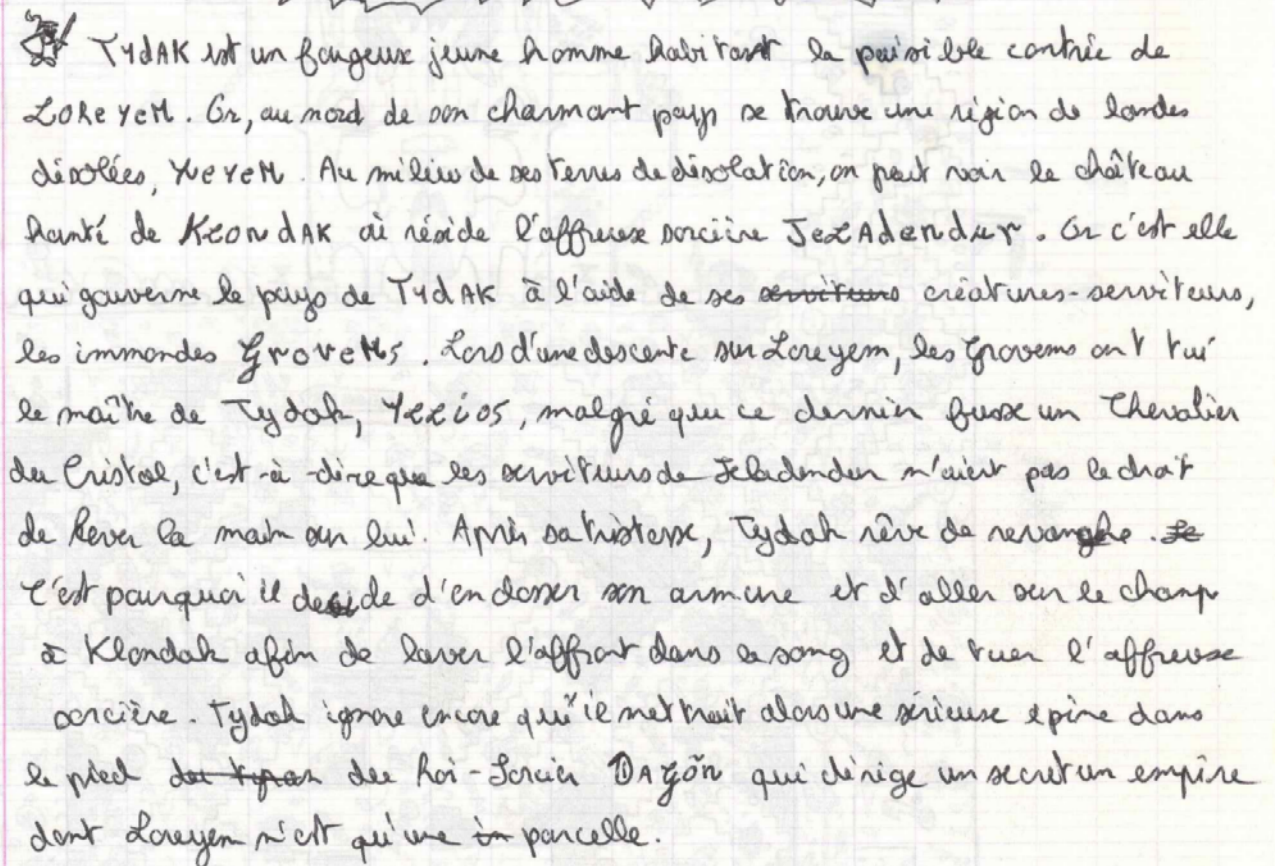 TYdAK est un fougeux jeune homme habitant la paisible contrée de
LOReYeM. Or, au nord de son charmant pays se trouve une région de landes
désolées, YveYeM. Au milieu de ses terres de désolation, on peut voir le château
hanté de KLONdAK où réside l'affreuse sorcière JeLAdendur. Or c'est elle
qui gouverne le pays de TYdAK à l'aide de ses serviteurs créatures-serviteurs,
les immondes GroveMs. Lors d'une descente sur Loreyem, les Grovems ont tué
le maître de Tydak, YeLios, malgré que ce dernier fusse un Chevalier
du Cristal, c'est-à-dire que les serviteurs de Jeladendur n'aient pas le droit
de lever la main sur lui. Après sa tristesse, Tydak rêve de revanche. Je
C'est pourquoi il decide d'endosser son armure et d'aller sur le champ
à Klondak afin de laver l'affront dans le sang et de tuer l'affreuse
sorcière. Tydak ignore encore qu'il mettrait alors une sérieuse épine dans
le pied du tyran du Roi-Sorcier DAgön qui dirige un secret un empire
dont Loreyem n'est qu'une in parcelle.